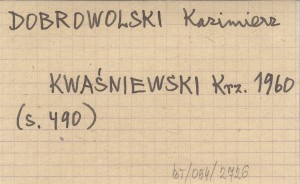 DOBROWOLSKI Kazimierz
KWAŚNIEWSKI Krz. 1960
(s. 490)